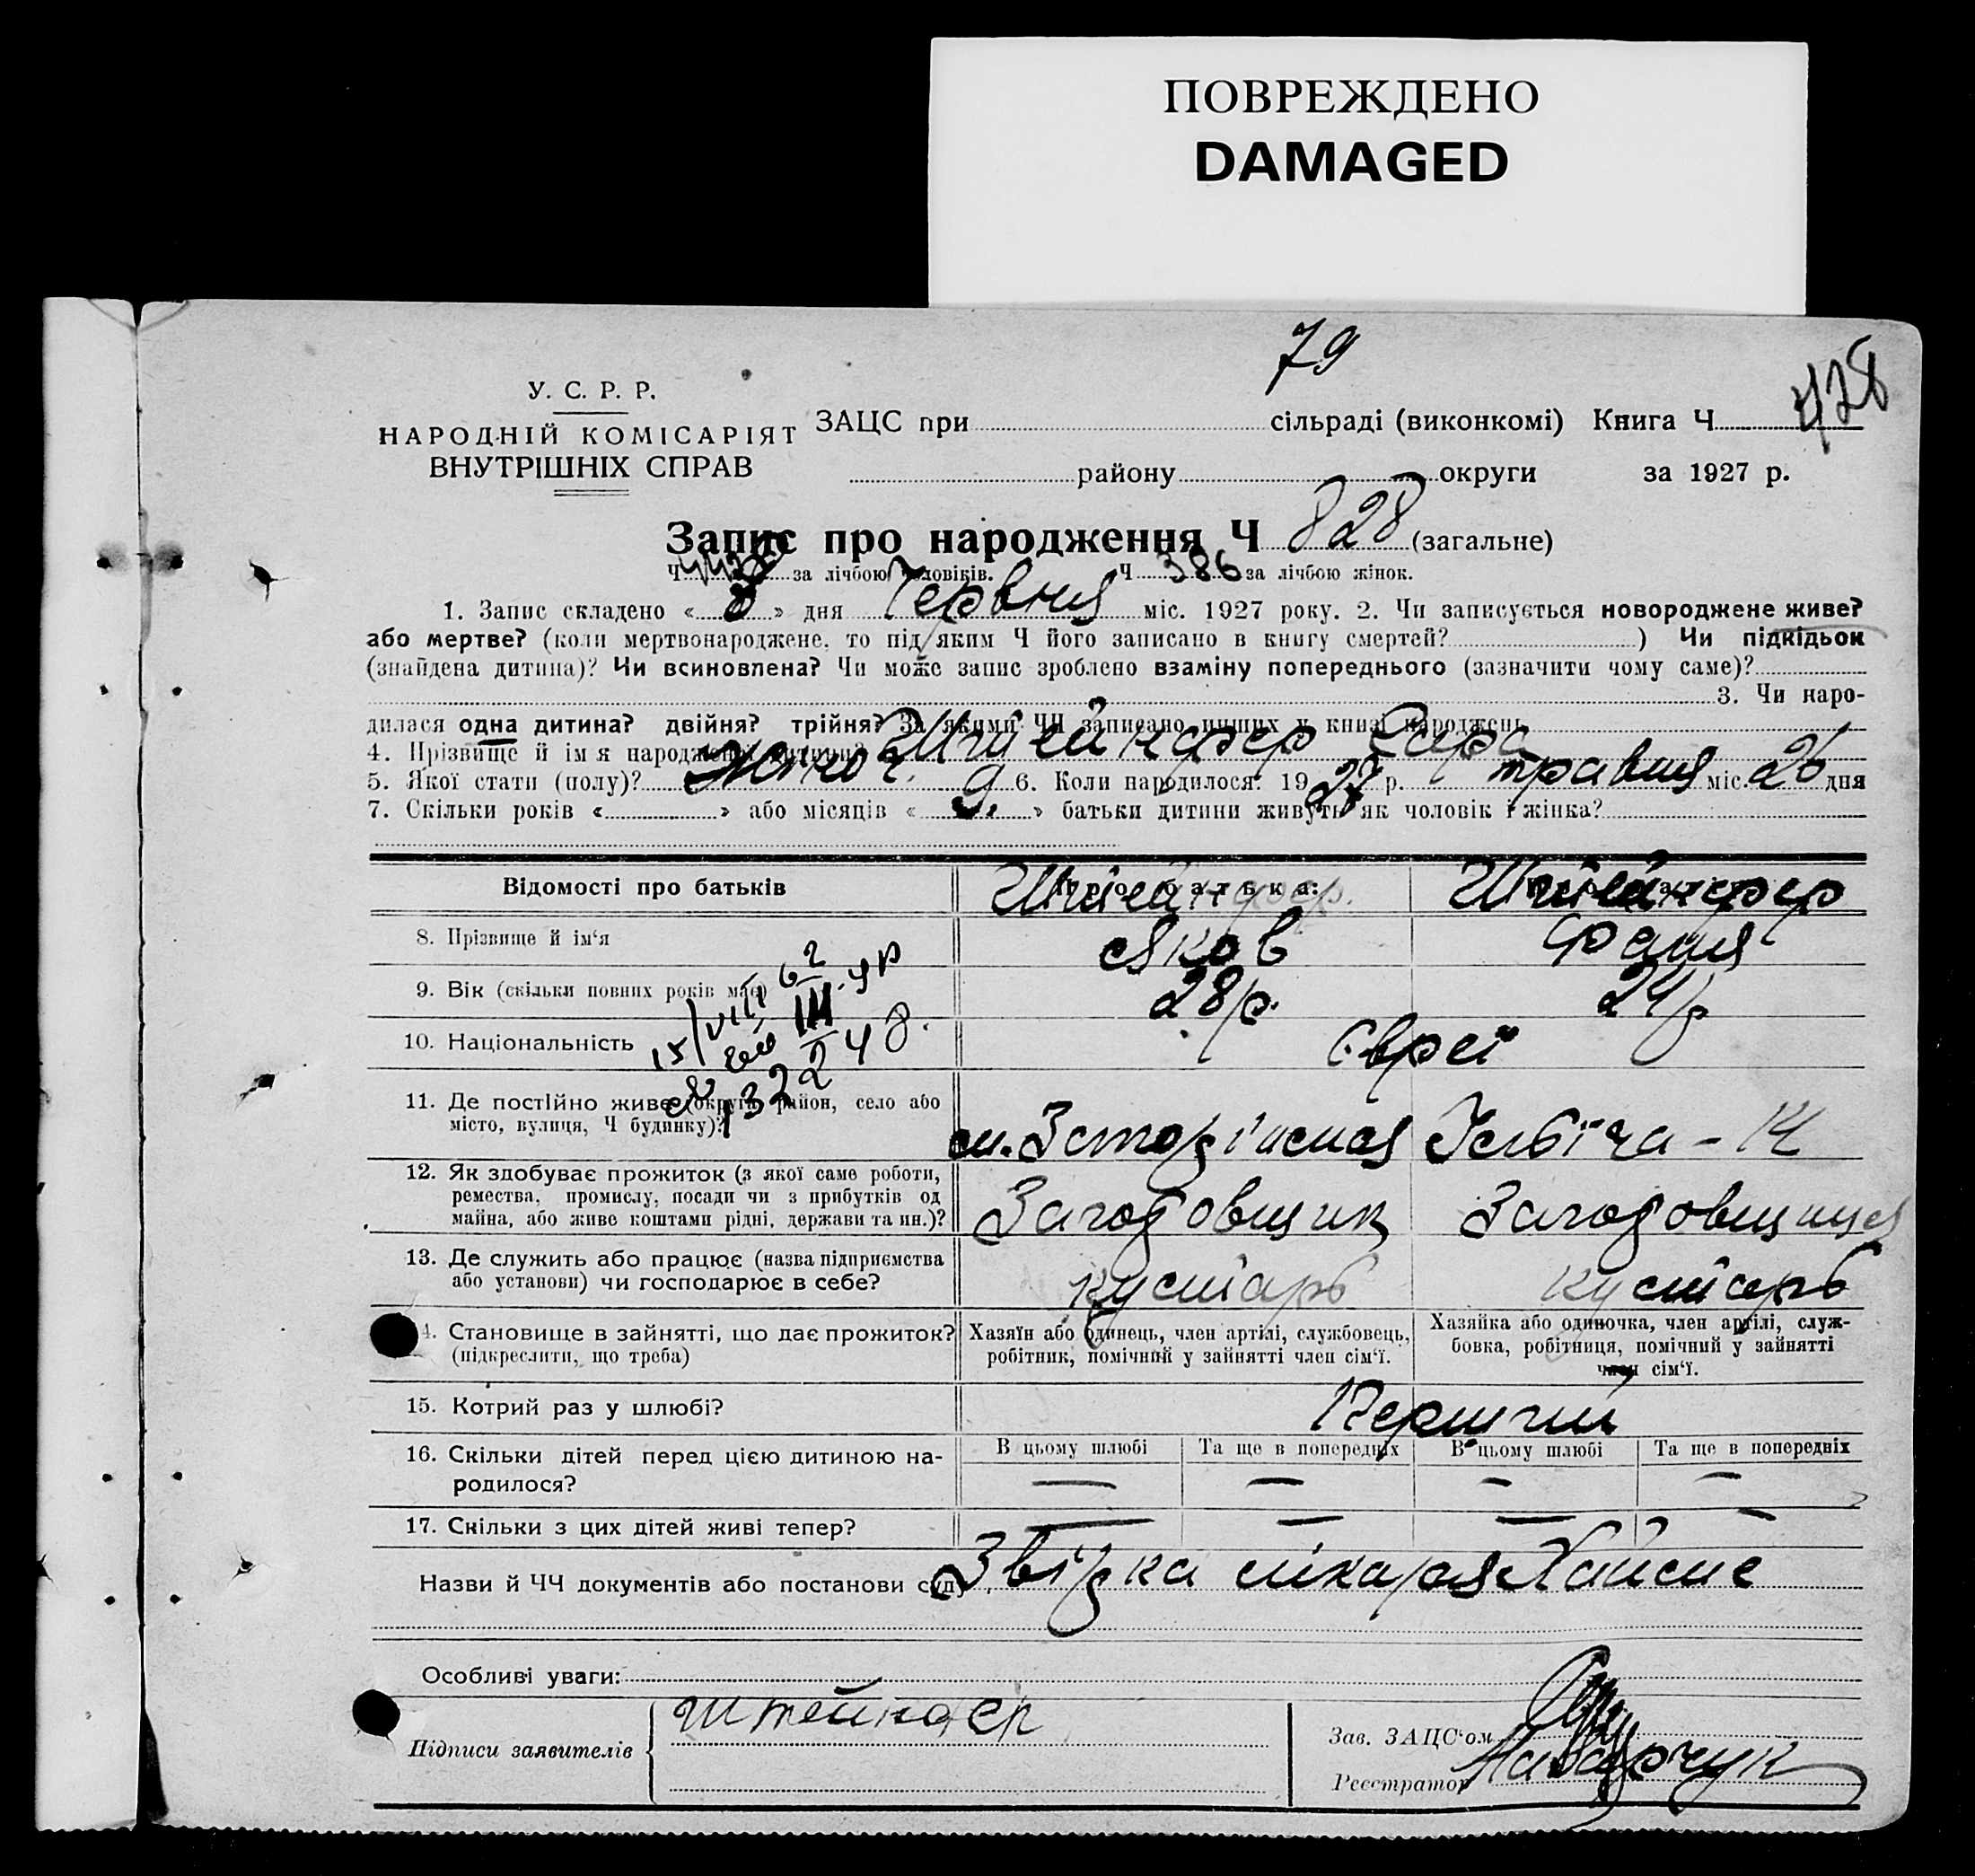 ПОВРЕЖДЕНО
DAMAGED
79
428
У. С. Р. Р.
НАРОДНІЙ КОМІСАРІЯТ
ВНУТРІШНІХ СПРАВ
ЗАЦС при сільраді (виконкомі) Книга Ч
району округи за 1927 р.
Запис про народження Ч 828 (загальне)
Ч за лічбою чоловіків. Ч 386 за лічбою жінок.
1. Запис складено « 8 » дня Червня міс. 1927 року. 2. Чи записується новороджене живе?
або мертве? (коли мертвонароджене, то під яким Ч його записано в книгу смертей? ) Чи підкідьок
(знайдена дитина)? Чи всиновлена? Чи може запис зроблено взаміну попереднього (зазначити чому саме)?
3. Чи наро-
дилася одна дитина? двійня? трійня? За якими ЧЧ записано инших у книзі народжень
4. Прізвище й ім я народженої дитини? Штейндер Сара
5. Якої стати (полу)? жіноч. 6. Коли народилося: 1927 р. травня міс. 26 дня
7. Скільки років « » або місяців « 9. » батьки дитини живуть як чоловік і жінка?
Відомості про батьків
Про батька:
Штейндер.
Штейндер
8. Прізвище й ім'я Яков Фаня
9. Вік (скільки повних років має) 28 р. 24 р
10. Національність Євреї
15/VIII 62
III
248.
11. Де постійно живе (округа, район, село або
місто, вулиця, Ч будинку)? 14
12. Як здобуває прожиток (з якої саме роботи,
ремества, промислу, посади чи з прибутків од
майна, або живе коштами рідні, держави та ин.)?
Заготовщик Заготовщиця
13. Де служить або працює (назва підприємства
або установи) чи господарює в себе?
кустарь кустарь
14. Становище в зайнятті, що дає прожиток?
(підкреслити, що треба)
Хазяїн або одинець, член артілі, службовець,
робітник, помічний у зайнятті член сім'ї.
Хазяйка або одиночка, член артілі, служ-
бовка, робітниця, помічний у зайнятті
член сім'ї.
15. Котрий раз у шлюбі? Перший
16. Скільки дітей перед цією дитиною на-
родилося?
В цьому шлюбі Та ще в попередніх В цьому шлюбі Та ще в попередніх
— — — —
17. Скільки з цих дітей живі тепер? — — — —
Назви й ЧЧ документів або постанови суд. Звірка лікаря
Особливі уваги:
Підписи заявителів Штейндер
Зав. ЗАЦС'ом
Реєстратор